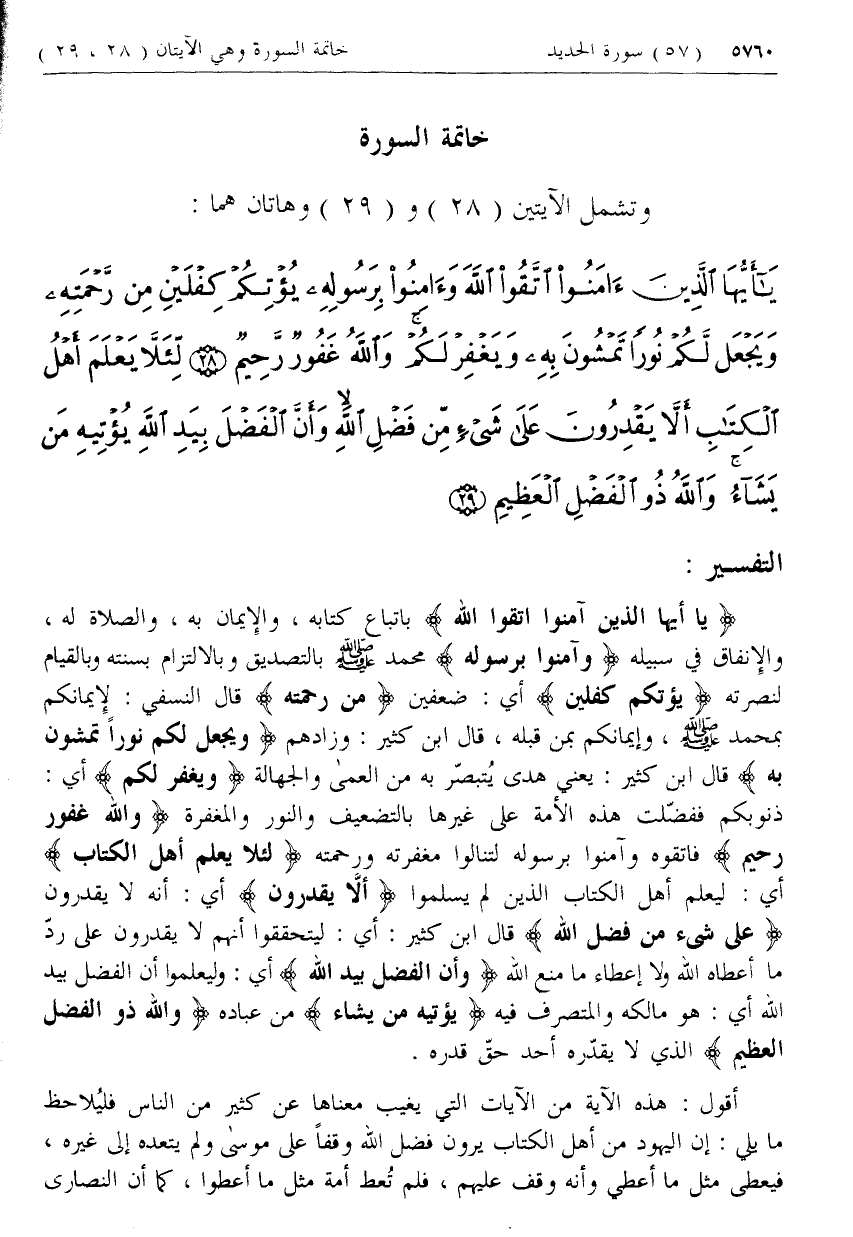 ٥٧٦٠ ( ٥٧ ) سورة الحديد خاتمة السورة وهي الآيتان ( ٢٨ ، ٢٩ )
خاتمة السورة
وتشمل الآيتين ( ٢٨ ) و ( ٢٩ ) وهاتان هما :
يَٰٓأَيُّهَا ٱلَّذِينَ ءَامَنُوا۟ ٱتَّقُوا۟ ٱللَّهَ وَءَامِنُوا۟ بِرَسُولِهِۦ يُؤْتِكُمْ كِفْلَيْنِ مِن رَّحْمَتِهِۦ
وَيَجْعَل لَّكُمْ نُورًا تَمْشُونَ بِهِۦ وَيَغْفِرْ لَكُمْ ۚ وَٱللَّهُ غَفُورٌ رَّحِيمٌ ﴿٢٨﴾ لِّئَلَّا يَعْلَمَ أَهْلُ
ٱلْكِتَٰبِ أَلَّا يَقْدِرُونَ عَلَىٰ شَىْءٍ مِّن فَضْلِ ٱللَّهِ ۙ وَأَنَّ ٱلْفَضْلَ بِيَدِ ٱللَّهِ يُؤْتِيهِ مَن
يَشَآءُ ۚ وَٱللَّهُ ذُو ٱلْفَضْلِ ٱلْعَظِيمِ ﴿٢٩﴾
التفسير :
﴿ يا أيها الذين آمنوا اتقوا الله ﴾ باتباع كتابه ، والإيمان به ، والصلاة له ،
والإنفاق في سبيله ﴿ وآمنوا برسوله ﴾ محمد ﷺ بالتصديق وبالالتزام بسنته وبالقيام
لنصرته ﴿ يؤتكم كفلين ﴾ أي : ضعفين ﴿ من رحمته ﴾ قال النسفي : لإيمانكم
بمحمد ﷺ ، وإيمانكم بمن قبله ، قال ابن كثير : وزادهم ﴿ ويجعل لكم نوراً تمشون
به ﴾ قال ابن كثير : يعني هدى يُتبصّر به من العمىٰ والجهالة ﴿ ويغفر لكم ﴾ أي :
ذنوبكم ففضّلت هذه الأمة على غيرها بالتضعيف والنور والمغفرة ﴿ والله غفور
رحيم ﴾ فاتقوه وآمنوا برسوله لتنالوا مغفرته ورحمته ﴿ لئلا يعلم أهل الكتاب ﴾
أي : ليعلم أهل الكتاب الذين لم يسلموا ﴿ ألَّا يقدرون ﴾ أي : أنه لا يقدرون
﴿ على شيء من فضل الله ﴾ قال ابن كثير : أي : ليتحققوا أنهم لا يقدرون على ردّ
ما أعطاه الله ولا إعطاء ما منع الله ﴿ وأن الفضل بيد الله ﴾ أي : وليعلموا أن الفضل بيد
الله أي : هو مالكه والمتصرف فيه ﴿ يؤتيه من يشاء ﴾ من عباده ﴿ والله ذو الفضل
العظيم ﴾ الذي لا يقدّره أحد حقّ قدره .
أقول : هذه الآية من الآيات التي يغيب معناها عن كثير من الناس فليُلاحظ
ما يلي : إن اليهود من أهل الكتاب يرون فضل الله وقفاً على موسىٰ ولم يتعده إلى غيره ،
فيعطى مثل ما أعطي وأنه وقف عليهم ، فلم تُعط أمة مثل ما أعطوا ، كما أن النصارى